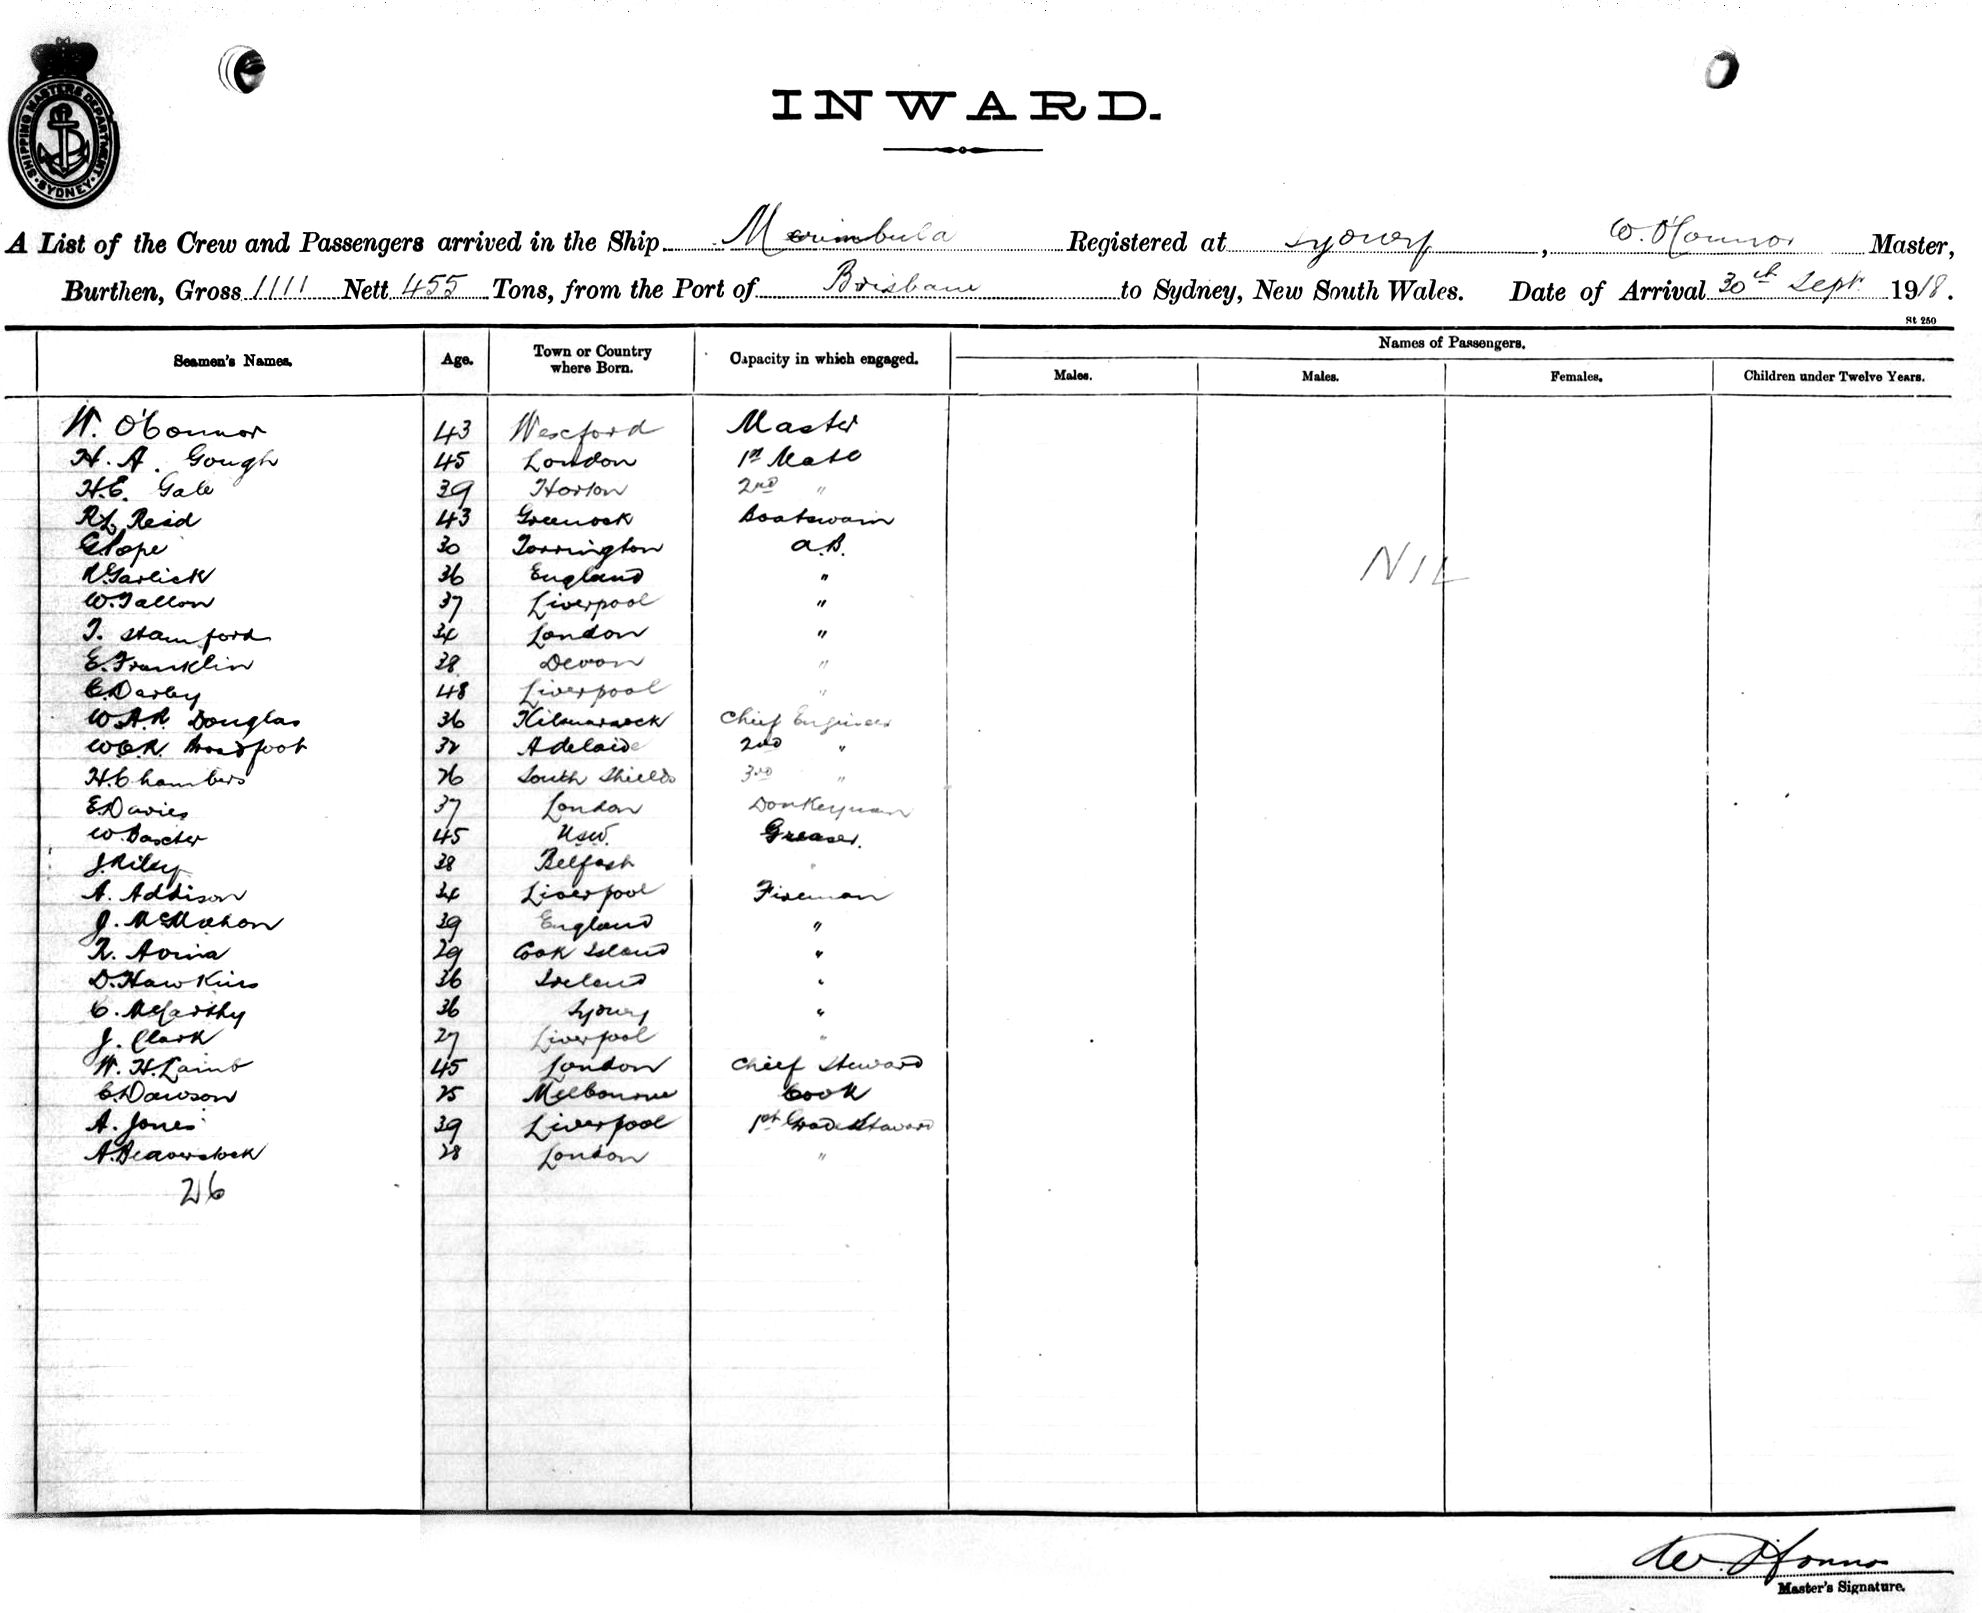 SHIPPING MASTERS DEPARTMENT. SYDNEY
INWARD.
A List of the Crew and Passengers arrived in the Ship Merimbula Registered at Sydney, W. O'Connor Master,
Burthen, Gross 1111 Nett 455 Tons, from the Port of Brisbane to Sydney, New South Wales. Date of Arrival 30th Sept 1918.
St 250
Seamen's Names. Age. Town or Country where Born. Capacity in which engaged. Names of Passengers.
Males. Males. Females. Children under Twelve Years.
W. O'Connor 43 Wexford Master
H. A. Gough 45 London 1st Mate
H.E. Gale 39 Horton 2nd "
R.L. Reid 43 Greenock Boatswain
G. Pope 30 Torrington A.B.
R. Garlick 36 England "
W. Tallon 37 Liverpool "
T. Stamford 34 London "
E. Franklin 38 Devon "
C. Darby 48 Liverpool "
W.A.R. Douglas 36 Kilmarnock Chief Engineer
W.C.R. Broadfoot 32 Adelaide 2nd "
H. Chambers 26 South Shields 3rd "
E. Davies 37 London Donkeyman
W. 45 NSW. Greaser.
J. Riley 38 Belfast "
A. Addison 34 Liverpool Fireman
J. McMahon 39 England "
29 Cook Island "
D. Hawkins 36 Ireland "
C. McCarthy 36 Sydney "
J. Clark 27 Liverpool "
W. H. Lamb 45 London Chief Steward
C. Dawson 25 Melbourne Cook
A. Jones 39 Liverpool 1st Grade Steward
A. Beaverstock 28 London "
26
NIL
W. O'Connor
Master's Signature.